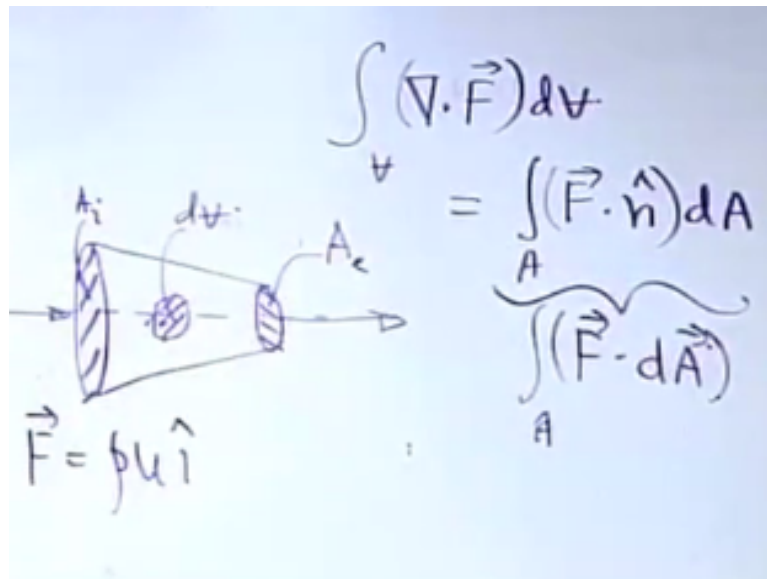 ∫_V (∇·F⃗)dV
= ∫_A (F⃗·n̂)dA
∫_A (F⃗·dA⃗)
A_i
dV
A_e
F⃗ = ρu î